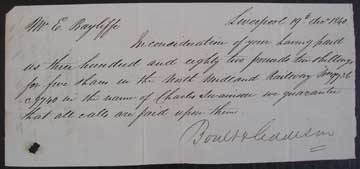 Mr E. Bayliffe Liverpool 19th Decr 1840
In consideration of your having paid
us three hundred and eighty two pounds ten shillings
for five shares in the North Midland Railway
in the name of Charles Swainson we guarantee
that all calls are paid upon them.
Boult & Addison